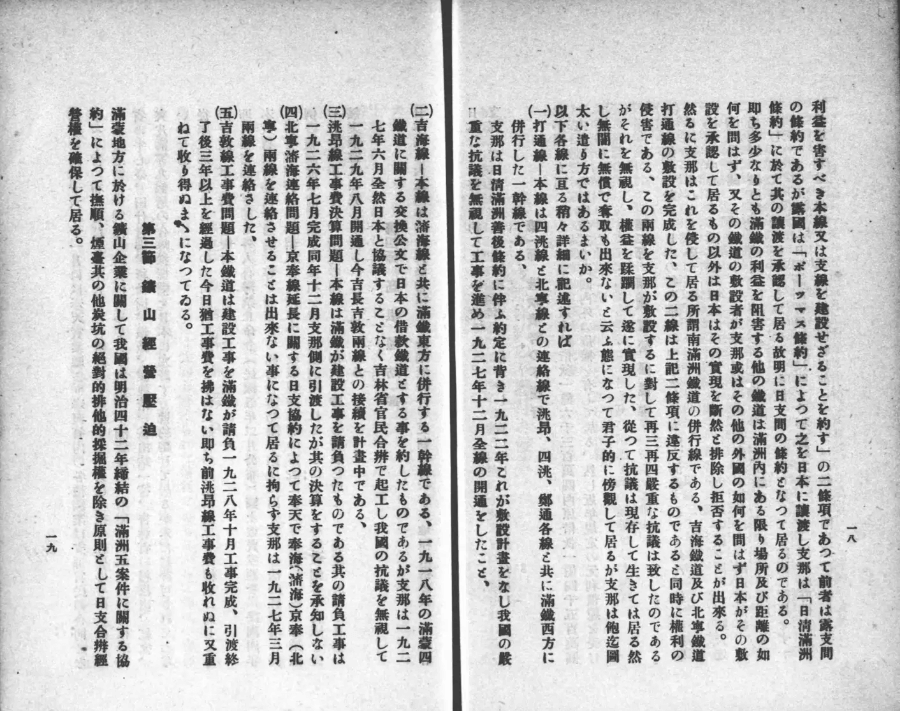 利益を害すべき本線又は支線を建設せざることを約す」の二條項であつて前者は露支間
の條約であるが露國は「ポーツマス條約」によつて之を日本に讓渡し支那は「日清滿洲
條約」に於て其の讓渡を承認して居る故明に日支間の條約となつて居るのである。
即ち多少なりとも滿鐵の利益を阻害する他の鐵道は滿洲內にある限り場所及び距離の如
何を問はず、又その鐵道の敷設者が支那或はその他の外國の如何を問はず日本がその敷
設を承認して居るもの以外は日本はその實現を斷然と排除し拒否することが出來る。
然るに支那はこれを侵して居る所謂南滿洲鐵道の併行線である、吉海鐵道及び北寧鐵道
打通線の敷設を完成した、この二線は上記二條項に違反するものであると同時に權利の
侵害である、この兩線を支那が敷設するに對して再三再四嚴重な抗議は致したのである
がそれを無視し、權益を蹂躙して遂に實現した、從つて抗議は現存して生きては居る然
し無闇に無償で奪取も出來ないと云ふ態になつて君子的に傍觀して居るが支那は飽迄圖
太い遣り方ではあるまいか。
以下各線に亙る稍々詳細に記述すれば
(一)打通線―本線は四洮線と北寧線との連絡線で洮昂、四洮、鄭通各線と共に滿鐵西方に
併行した一幹線である、
支那は日清滿洲善後條約に伴ふ約定に背き一九二二年これが敷設計畫をなし我國の嚴
重な抗議を無視して工事を進め一九二七年十二月全線の開通をしたこと、
一八
(二)吉海線―本線は瀋海線と共に滿鐵東方に併行する一幹線である、一九一八年の滿蒙四
鐵道に關する交換公文で日本の借款鐵道とする事を約したものであるが支那は一九二
七年六月全然日本と協議することなく吉林省官民合辨で起工し我國の抗議を無視して
一九二九年八月開通し今吉長吉敦兩線との接續を計畫中である、
(三)洮昂線工事費決算問題―本線は滿鐵が建設工事を請負つたものである其の請負工事は
一九二六年七月完成同年十二月支那側に引渡したが其の決算をすることを承知しない
(四)北寧瀋海連絡問題―京奉線延長に關する日支協約によつて奉天で奉海(瀋海)京奉(北
寧)兩線を連絡させることは出來ない事になつて居るに拘らず支那は一九二七年三月
兩線を連絡さした、
(五)吉敦線工事費問題―本鐵道は建設工事を滿鐵が請負一九二八年十月工事完成、引渡終
了後三年以上を經過した今日猶工事費を拂はない即ち前洮昂線工事費も收れぬに又重
ねて收り得ぬまゝになつてゐる。
第三節 鑛山經營壓迫
滿蒙地方に於ける鑛山企業に關して我國は明治四十二年締結の「滿洲五案件に關する協
約」によつて撫順、煙臺其の他炭坑の絕對的排他的採掘權を除き原則として日支合辨經
營權を確保して居る。
一九